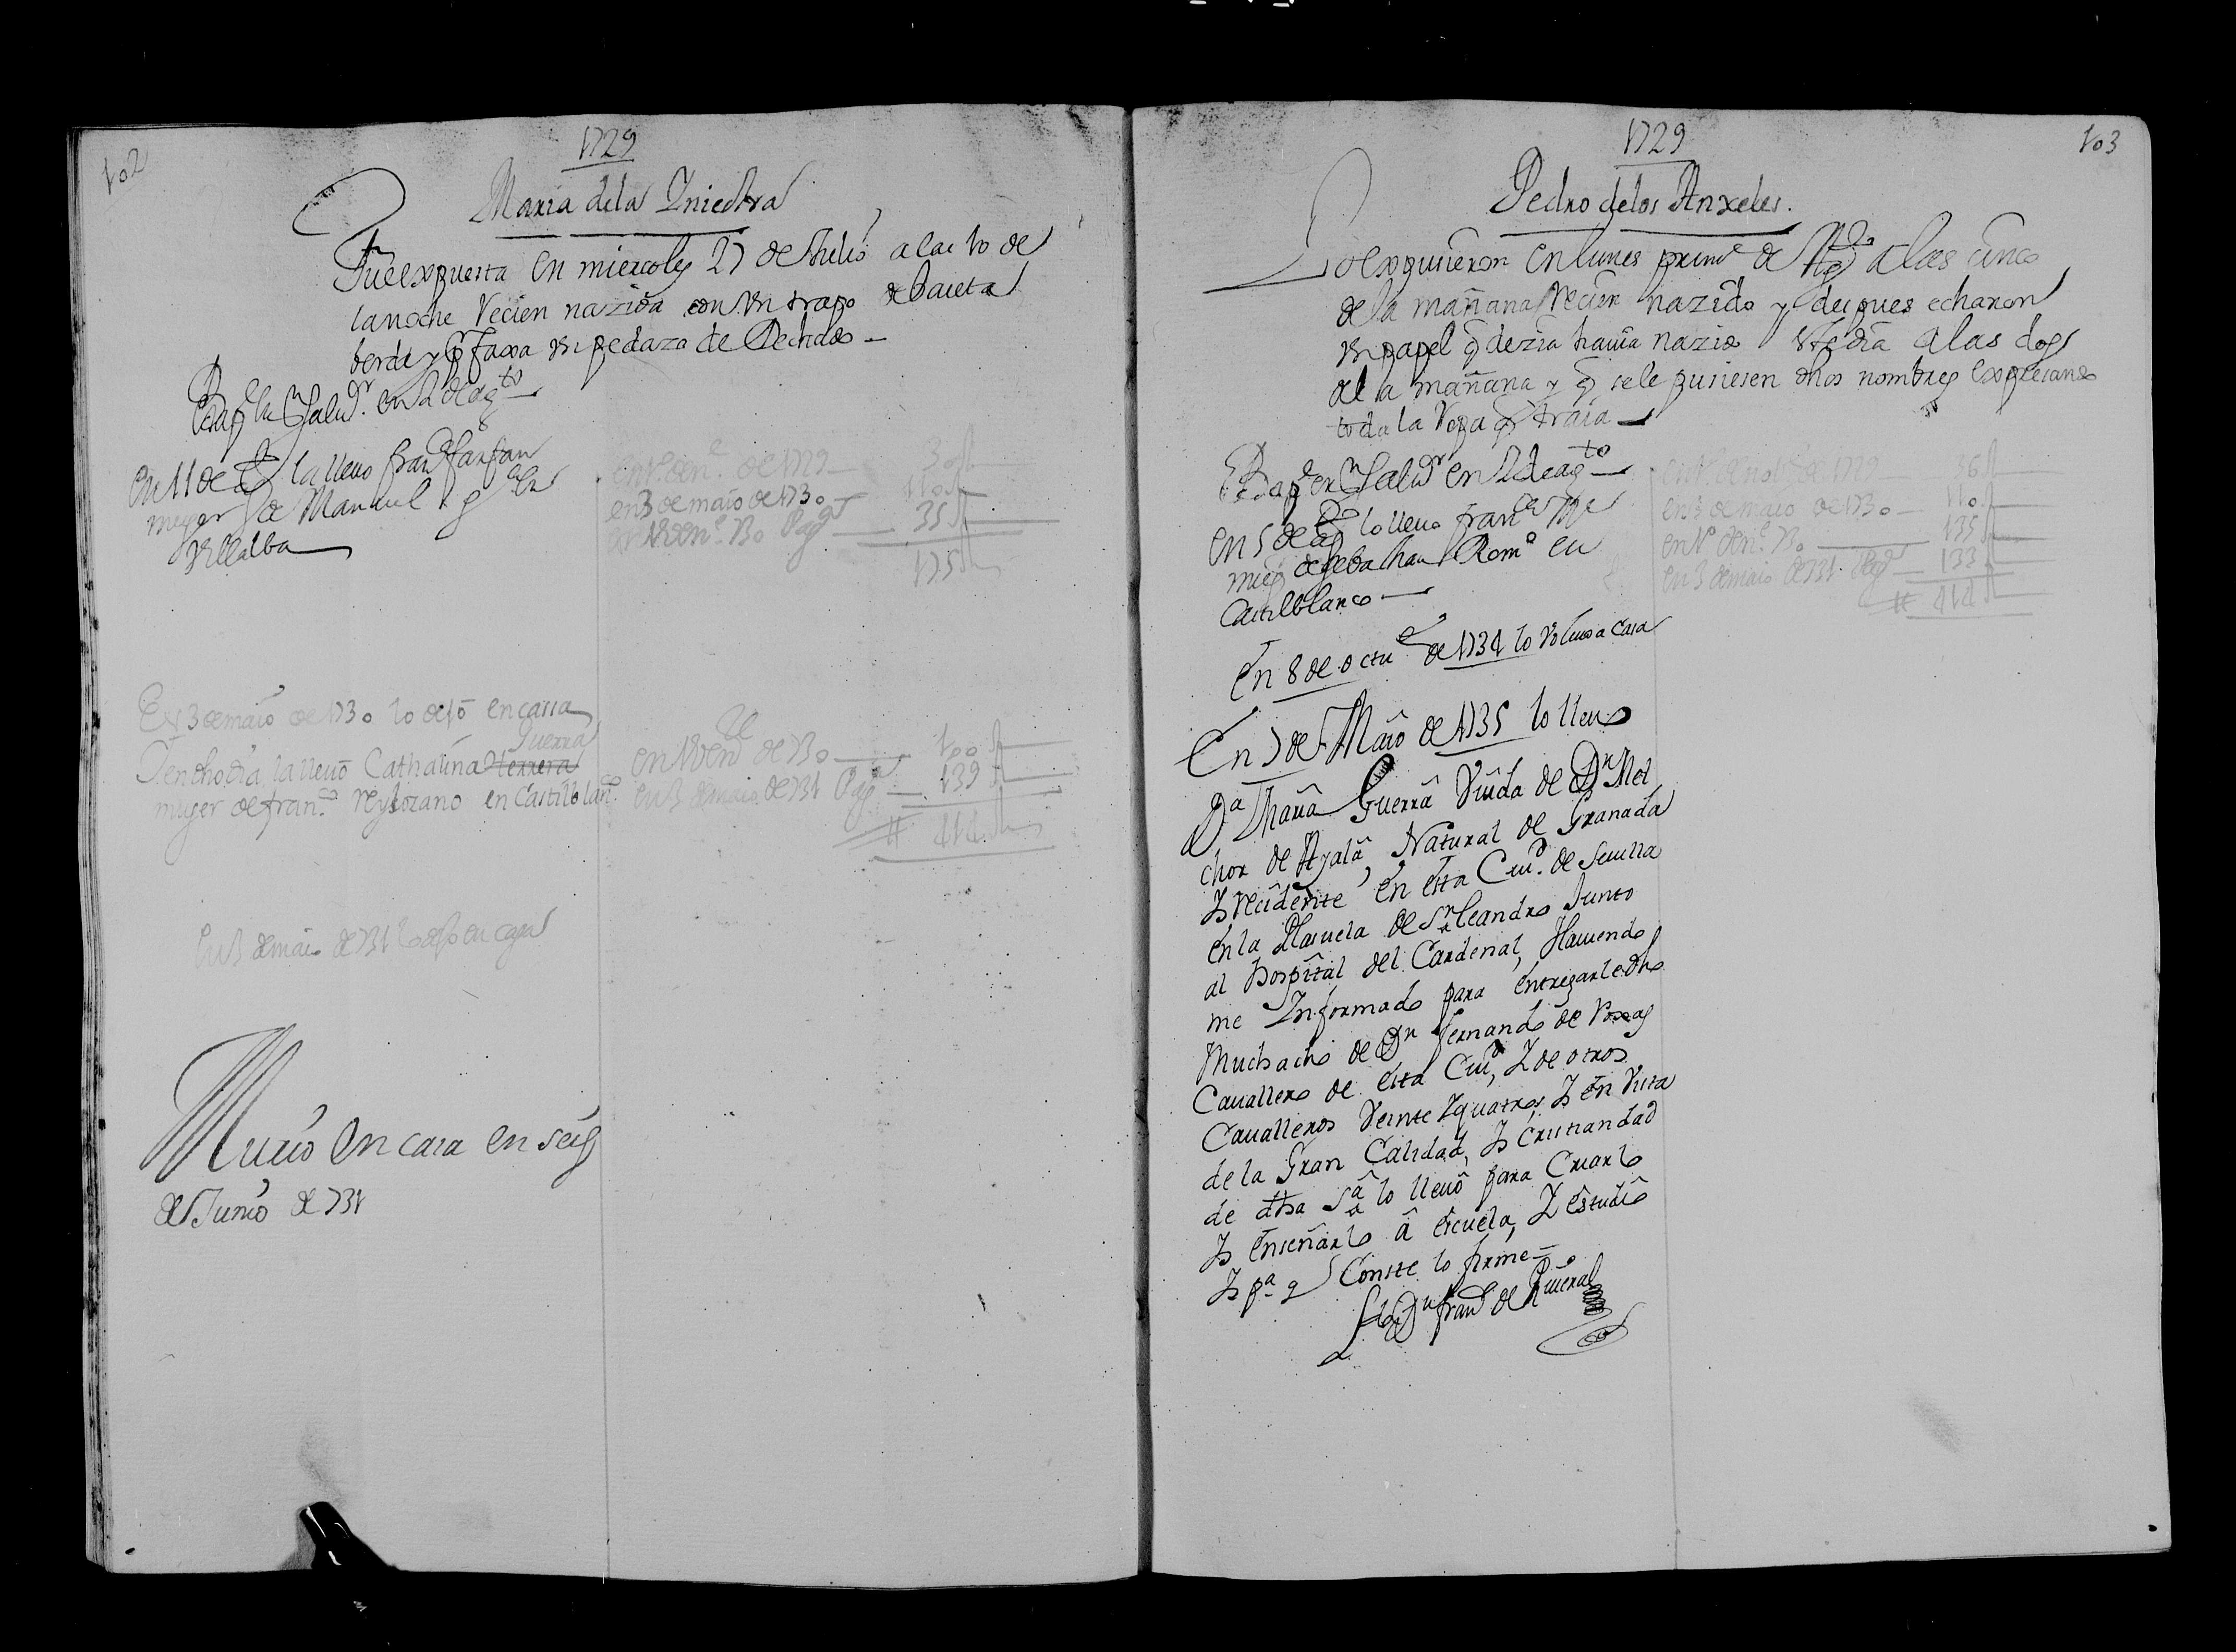 102
1729
Maria dela Yniestra
Fue expuesta en miercoles 27 de Julio a las 10 de
la noche recien nazida con un trapo de baieta
berde y por faxa un pedazo de
en 2 de agto
en 11 de la lleuo franca farfan
muger de Manuel
Villalba
de 1729 30
en 3 de maio de 1730 110
Pag 35
175
En 3 de maio de 1730 lo dejo en cassa
Guerra
en dho dia la lleuo Cathalina Herrera
muger de franco Rey lozano en Castilblanco
de 730 100
en 3 de maio de 731 Pag 139
414
en 3 de maio de 731 lo dejo en casa
Murio en casa en seis
de Junio de 731
103
1729
Pedro delos Anxeles.
Lo expusieron en lunes primo de Ago a las cinco
de la mañana recien nazido y despues echaron
un papel q dezia hauia nazido este dia a las dos
de la mañana y q se le pusiesen dhos nombres expresando
toda la ropa q traia
en 2 de agto
en 5 de ago lo lleuo franca
muger de Sebastian Romo en
Castilblanco
de 1729 36
en 3 de maio de 1730 110
730 135
en 3 de maio de 731 Pag 133
414
En 8 de octue de 1734 lo voluio a casa
En 7 de Maio de 1735 lo lleuo
Da Maria Guerra Viuda de Dn Mel
chor de Ayala, Natural de Granada
Y recidente en esta Ciud. de Seuilla
en la Plasuela de Sn Leandro Junto
al Hospital del Cardenal, Hauiendo
me Informado para entregarle dho
Muchacho de Dn Fernando de Roxas
Cauallero de esta Ciud, Y de otros
Caualleros Veinte Yquatros, Y en Vista
de la Gran Calidad, Y Cristiandad
de dha Sa lo lleuo para Criarlo
Y enseñarlo a escuela, Y estudio
Y pa q Conste lo firme
Ldo Dn Franco de